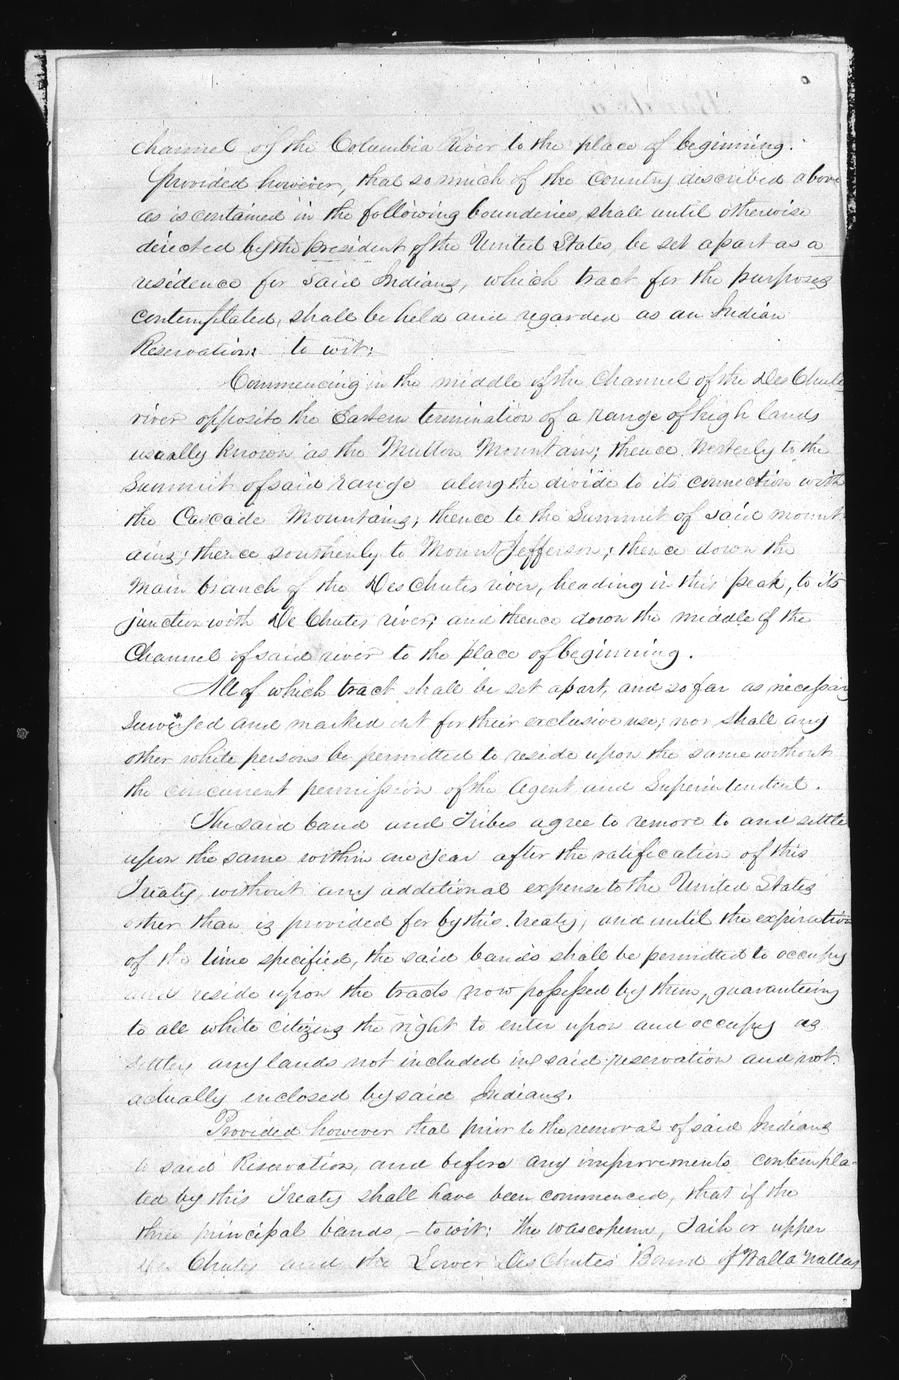 channel of the Columbia River to the place of beginning.
provided however, that so much of the country described above
as is contained in the following bounderies, shall until otherwise
directed by the president of the United States, be set apart as a
residence for said Indians, which tract for the purposes
contemplated, shall be held and regarded as an Indian
Reservation: to wit:
Commencing in the middle of the channel of the Des Chutes
river opposite the Eastern termination of a range of high lands
usually known as the Mutton Mountain; thence Westerly to the
Summit of said range along the divide to its connection with
the Cascade Mountains; thence to the Summit of said mount
ains; thence southerly to Mount Jefferson; thence down the
main branch of the Des Chutes river, heading in this peak, to its
junction with De Chutes river; and thence down the middle of the
Channel of said river to the place of beginning.
All of which tract shall be set apart, and so far as necessary
surveyed and marked out for their exclusive use; nor shall any
other white persons be permitted to reside upon the same without
the concurrent permission of the Agent and Superintendent.
The said band and Tribes agree to remove to and settle
upon the same within one year after the ratification of this
Treaty, without any additional expense to the United States
other than is provided for by this treaty; and until the expiration
of the time specified, the said bands shall be permitted to occupy
and reside upon the tracts now possessed by them, guaranteeing
to all white citizens the right to enter upon and occupy as
settlers any lands not included in said reservation and not
actually enclosed by said Indians.
Provided however that prior to the removal of said Indians
to said Reservation, and before any improvements contempla-
ted by this Treaty shall have been commenced, that if the
three principal bands, - to wit: the Wascopum, Taih or upper
Des Chutes and the Lower Des Chutes Band of Walla Wallas